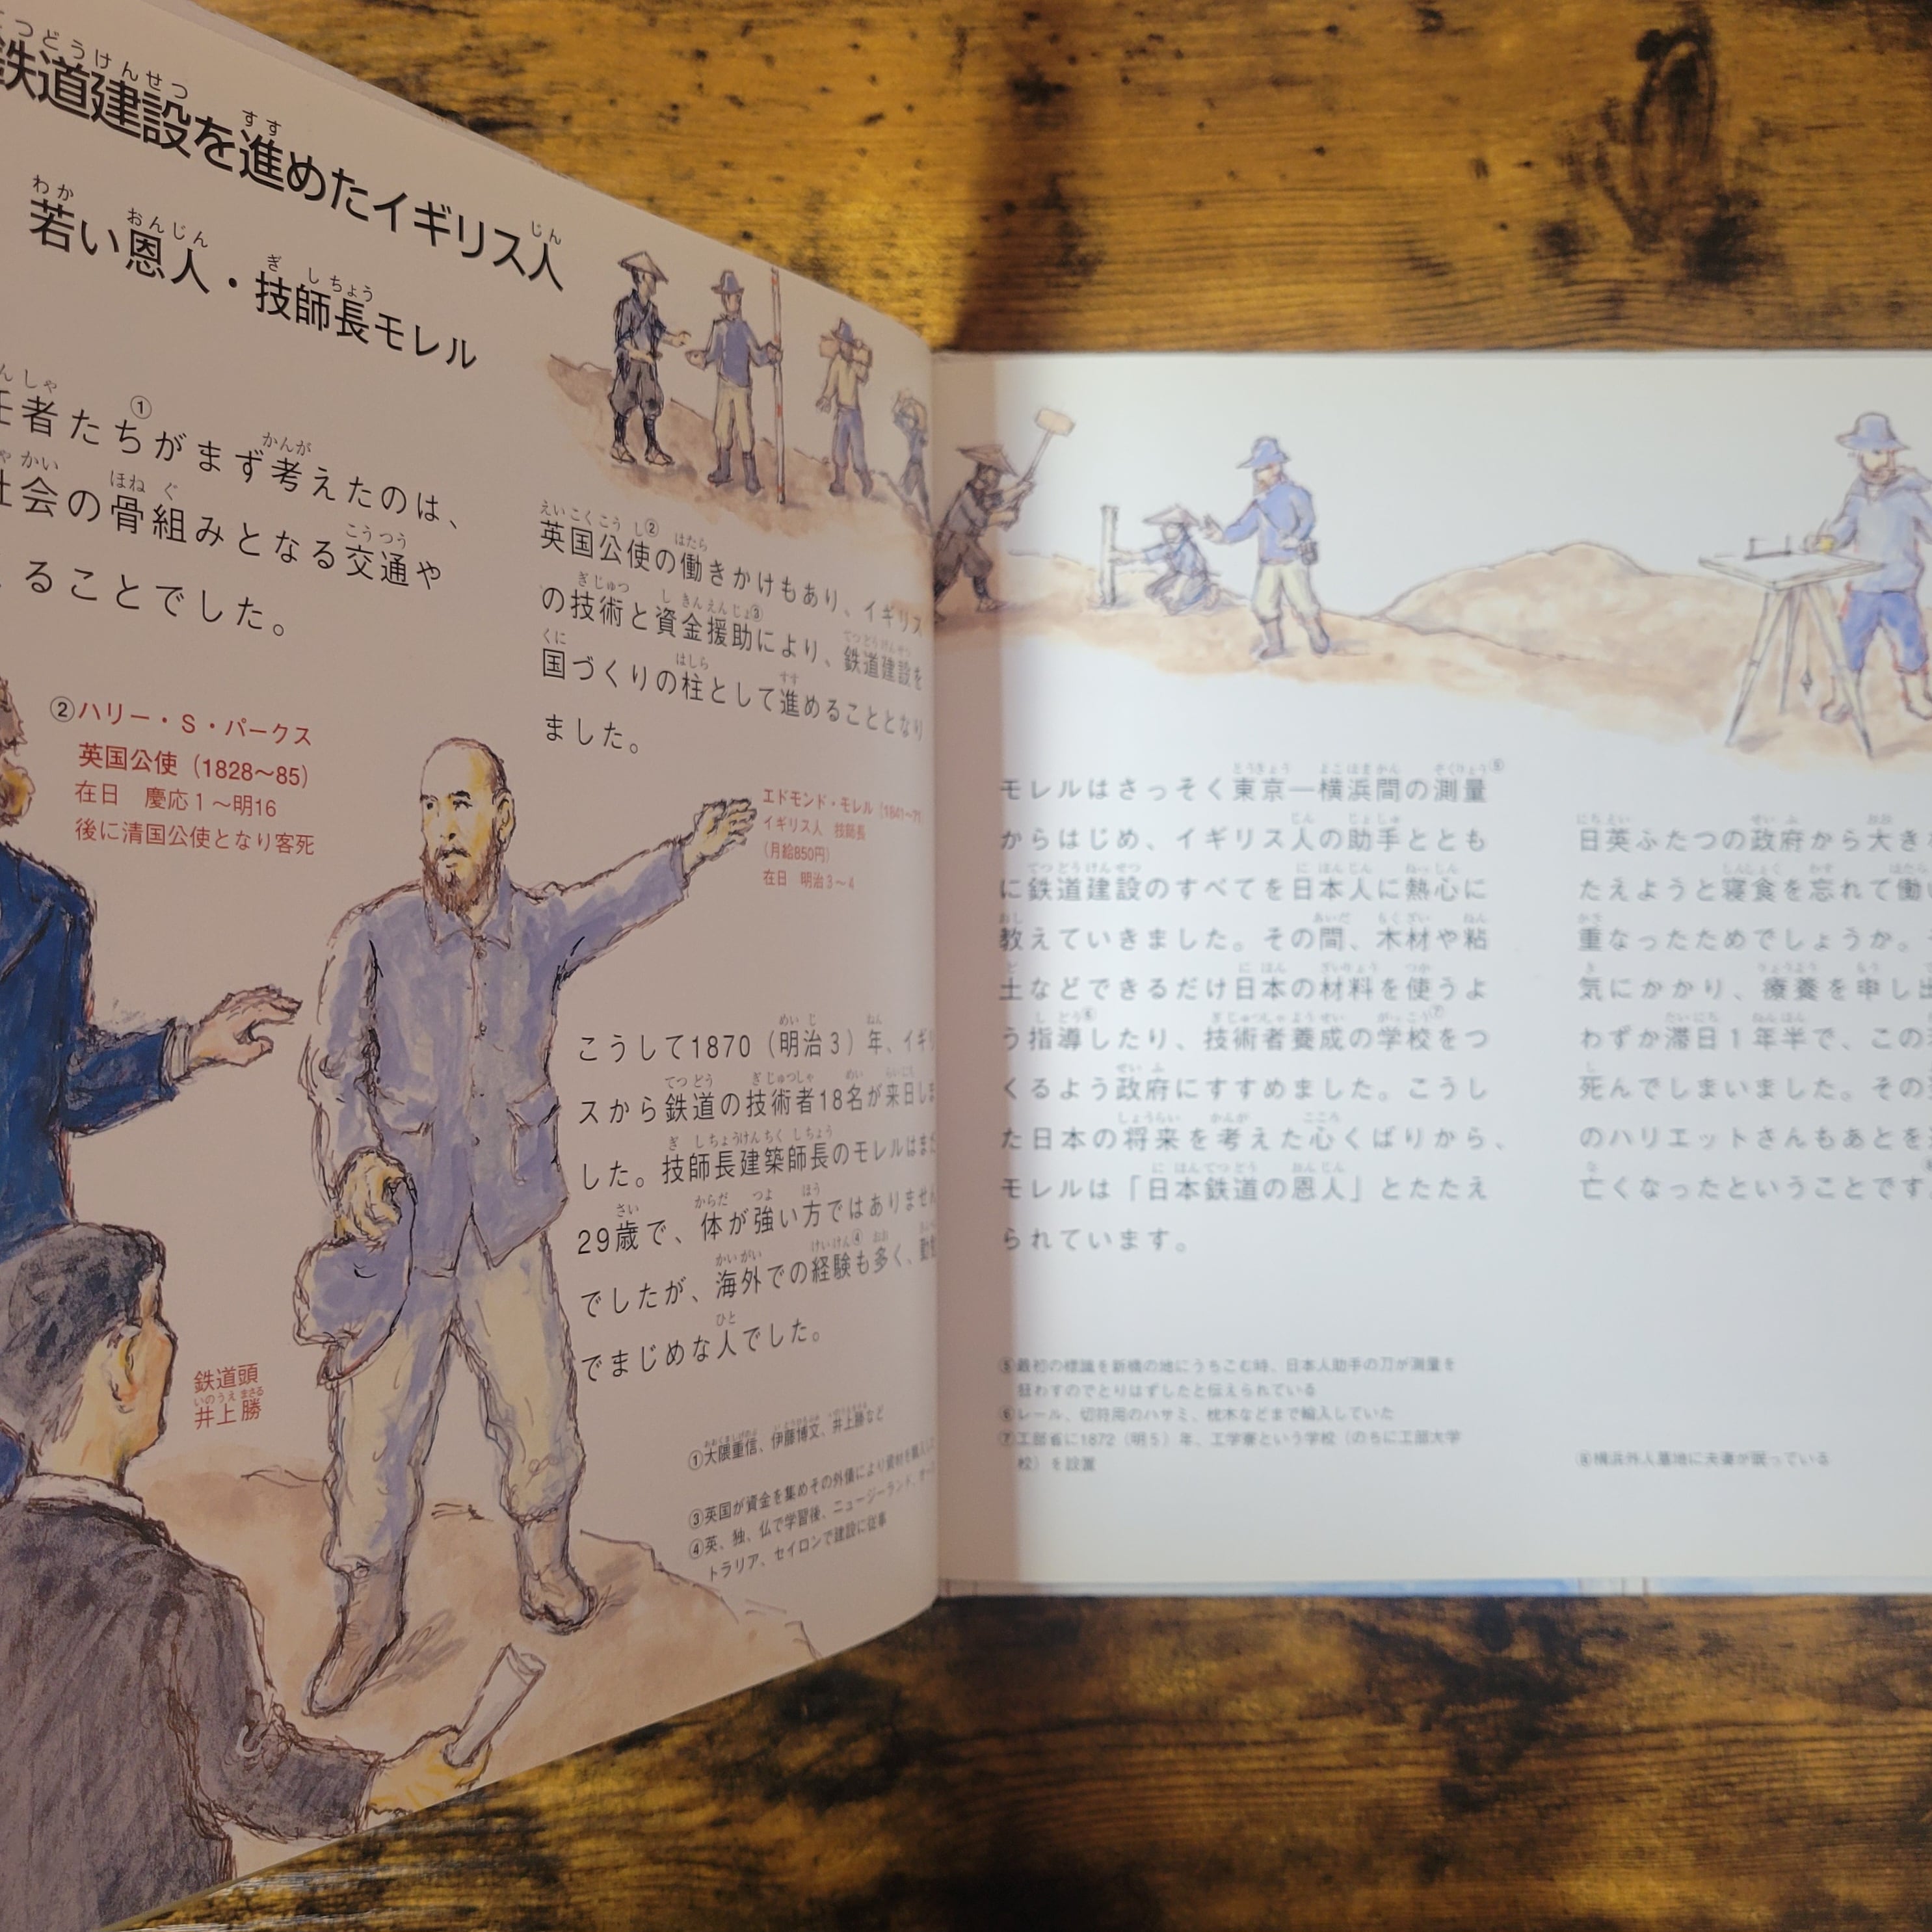 鉄道建設を進めたイギリス人
若い恩人・技師長モレル
者たち①がまず考えたのは、
社会の骨組みとなる交通や
ることでした。
英国公使②の働きかけもあり、イギリス
の技術と資金援助③により、鉄道建設を
国づくりの柱として進めることとなり
ました。
②ハリー・S・パークス
英国公使（1828〜85）
在日　慶応1〜明16
後に清国公使となり客死
エドモンド・モレル（1841〜71
イギリス人　技師長
（月給850円）
在日　明治3〜4
こうして1870（明治3）年、イギリ
スから鉄道の技術者18名が来日しま
した。技師長建築師長のモレルはまだ
29歳で、体が強い方ではありません
でしたが、海外での経験④も多く、
でまじめな人でした。
鉄道頭
井上勝
①大隈重信、伊藤博文、井上勝など
③英国が資金を集めその外債により資材を購入
④英、独、仏で学習後、ニュージーランド、オース
トラリア、セイロンで建設に従事
モレルはさっそく東京―横浜間の測量⑤
からはじめ、イギリス人の助手ととも
に鉄道建設のすべてを日本人に熱心に
教えていきました。その間、木材や粘
土などできるだけ日本の材料を使うよ
う指導⑥したり、技術者養成の学校⑦をつ
くるよう政府にすすめました。こうし
た日本の将来を考えた心くばりから、
モレルは「日本鉄道の恩人」とたたえ
られています。
日英ふたつの政府から大き
たえようと寝食を忘れて働
重なったためでしょうか。
気にかかり、療養を申し出
わずか滞日1年半で、この
死んでしまいました。その
のハリエットさんもあとを
亡くなったということです
⑤最初の標識を新橋の地にうちこむ時、日本人助手の刀が測量を
狂わすのでとりはずしたと伝えられている
⑥レール、切符用のハサミ、枕木などまで輸入していた
⑦工部省に1872（明5）年、工学寮という学校（のちに工部大学
校）を設置
⑧横浜外人墓地に夫妻が眠っている